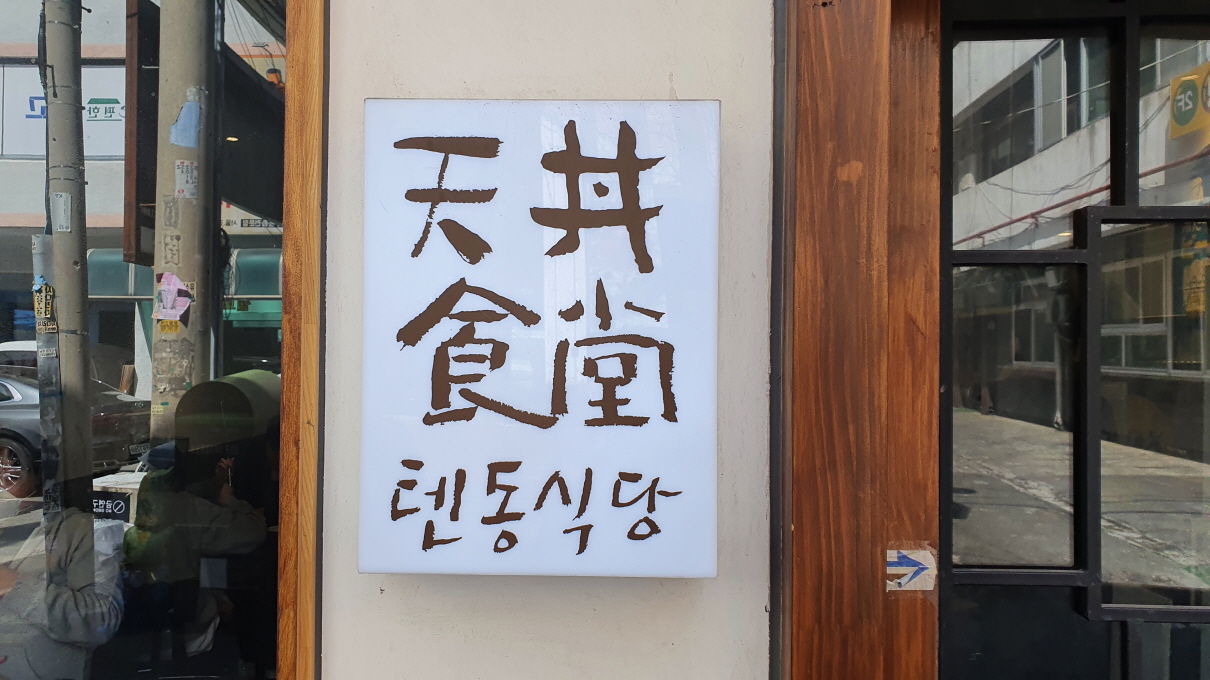 天丼
食堂
텐동식당
2F